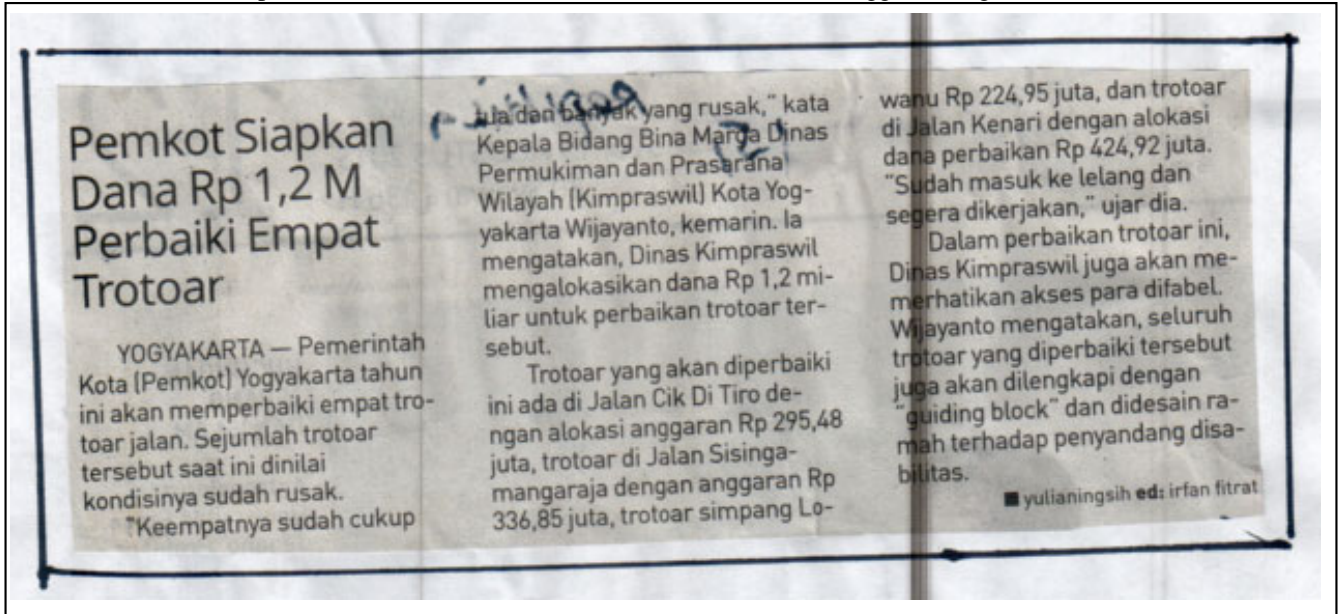 Pemkot Siapkan
Dana Rp 1,2 M
Perbaiki Empat
Trotoar
YOGYAKARTA — Pemerintah
Kota (Pemkot) Yogyakarta tahun
ini akan memperbaiki empat tro-
toar jalan. Sejumlah trotoar
tersebut saat ini dinilai
kondisinya sudah rusak.
"Keempatnya sudah cukup
dan banyak yang rusak," kata
Kepala Bidang Bina Marga Dinas
Permukiman dan Prasarana
Wilayah (Kimpraswil) Kota Yog-
yakarta Wijayanto, kemarin. Ia
mengatakan, Dinas Kimpraswil
mengalokasikan dana Rp 1,2 mi-
liar untuk perbaikan trotoar ter-
sebut.
Trotoar yang akan diperbaiki
ini ada di Jalan Cik Di Tiro de-
ngan alokasi anggaran Rp 295,48
juta, trotoar di Jalan Sisinga-
mangaraja dengan anggaran Rp
336,85 juta, trotoar simpang Lo-
wanu Rp 224,95 juta, dan trotoar
di Jalan Kenari dengan alokasi
dana perbaikan Rp 424,92 juta.
"Sudah masuk ke lelang dan
segera dikerjakan," ujar dia.
Dalam perbaikan trotoar ini,
Dinas Kimpraswil juga akan me-
merhatikan akses para difabel.
Wijayanto mengatakan, seluruh
trotoar yang diperbaiki tersebut
juga akan dilengkapi dengan
"guiding block" dan didesain ra-
mah terhadap penyandang disa-
bilitas.
■ yulianingsih ed: irfan fitrat